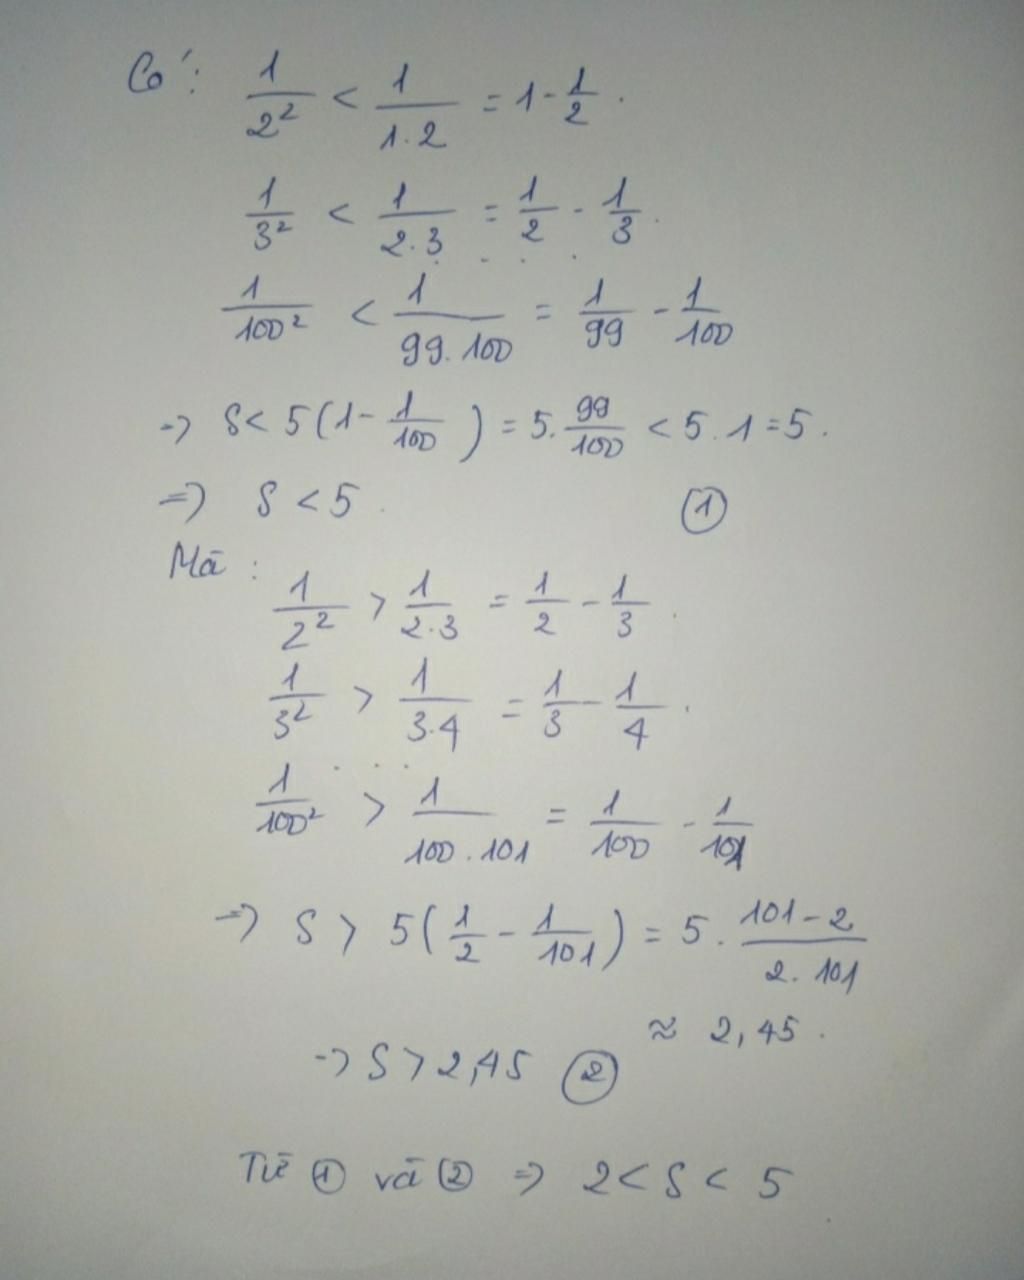 Có: 1/2² < 1/1.2 = 1 - 1/2.
1/3² < 1/2.3 = 1/2 - 1/3.
. . . .
1/100² < 1/99.100 = 1/99 - 1/100
-> S < 5(1 - 1/100) = 5. 99/100 < 5.1 = 5.
=> S < 5. ①
Mà:
1/2² > 1/2.3 = 1/2 - 1/3.
1/3² > 1/3.4 = 1/3 - 1/4.
. . .
1/100² > 1/100.101 = 1/100 - 1/101
=> S > 5(1/2 - 1/101) = 5. 101-2/2.101
≈ 2,45.
-> S > 2,45 ②
Từ ① và ② => 2 < S < 5